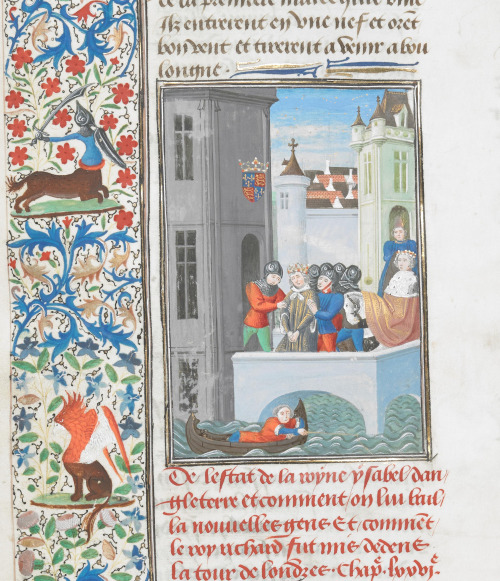 de la premiere maree
Ilz entrerent en vne nef et orēt
bon vent et tirerent a venir a bou
longne.
De lestat de la royne ysabel dan/
gleterre et comment on lui bail/
la nouvelles gens Et commēt
le roy richard fut mis dedens
la tour de londres. Chap.